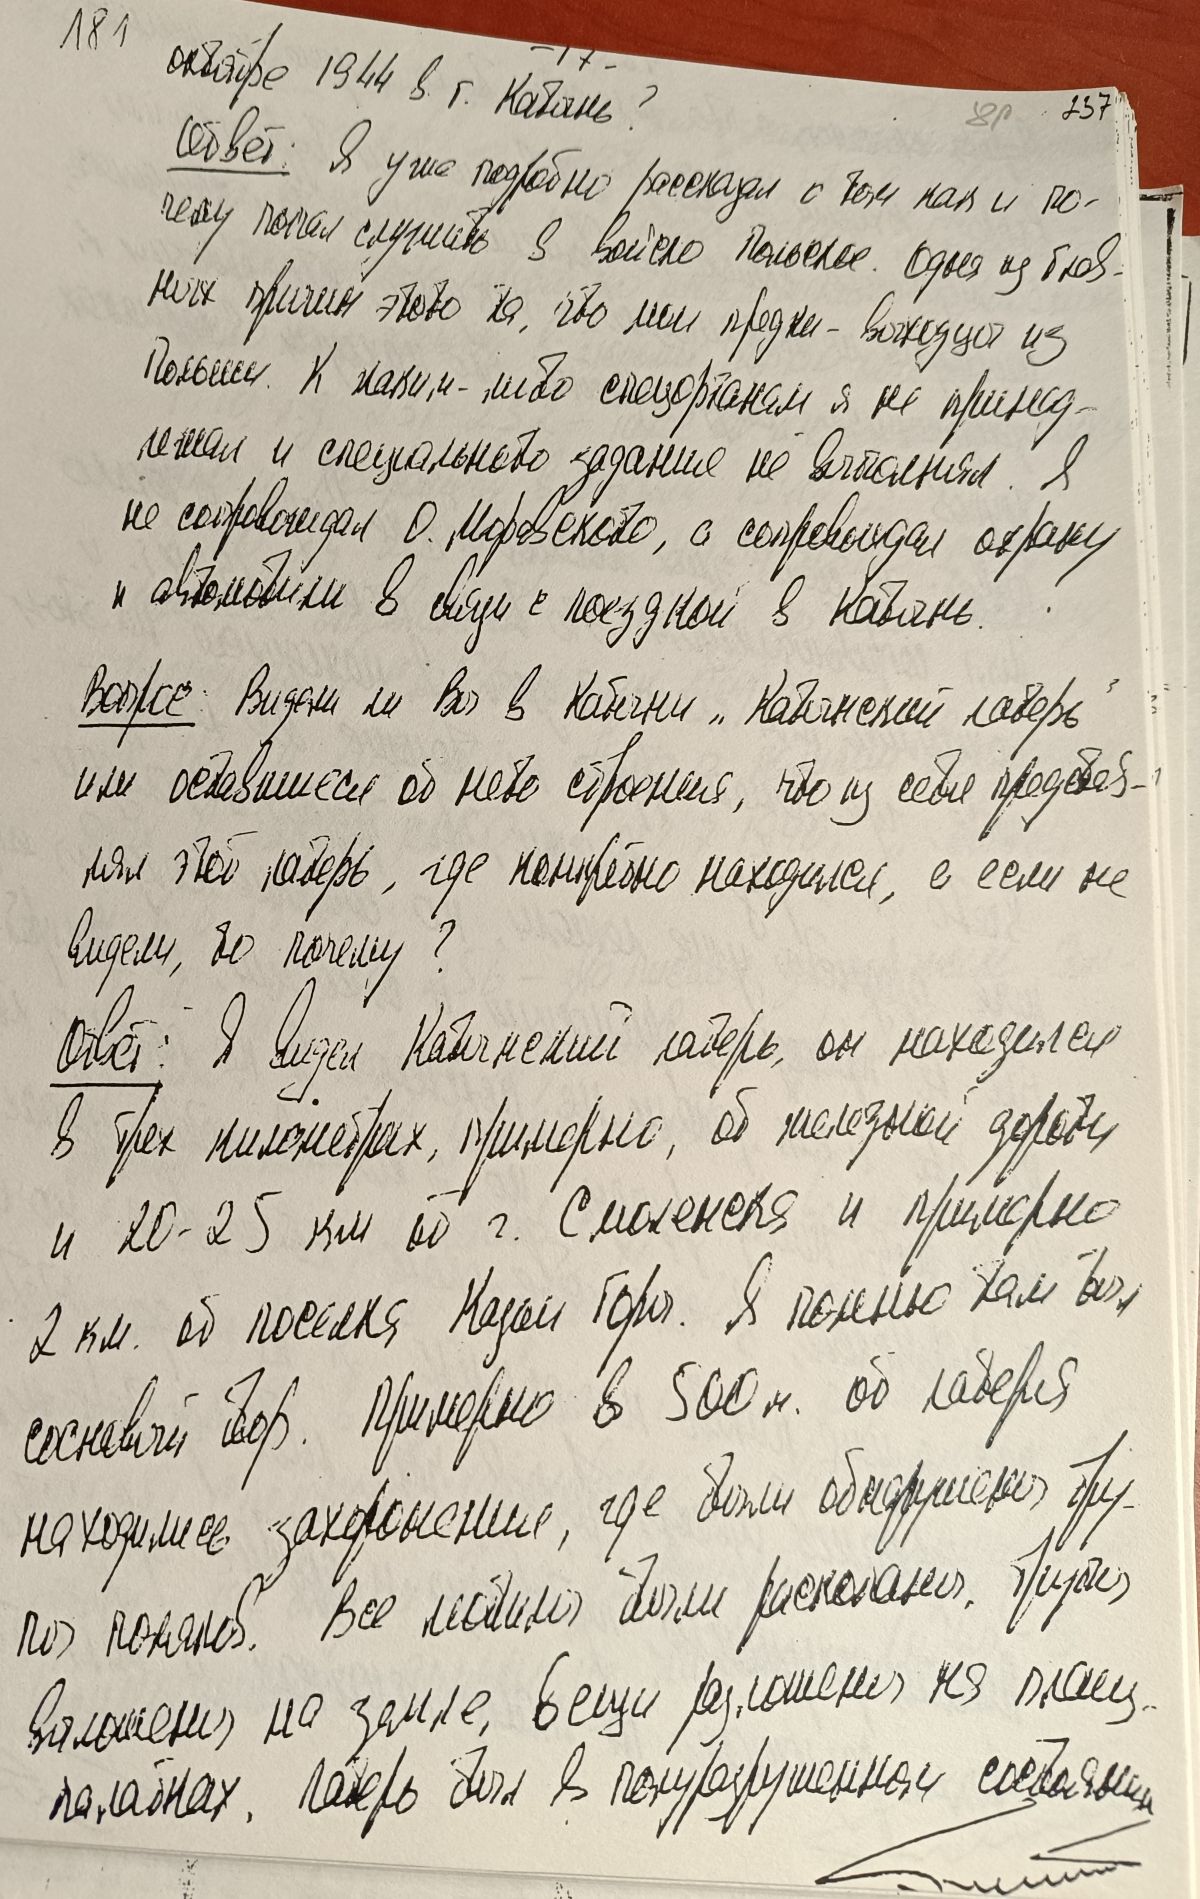 181
-17-
237
октябре 1944 в г. Катынь?
Ответ: Я уже подробно рассказал о том как и по-
чему попал служить в войско Польское. Одна из глав-
ных причин этого та, что мои предки - выходцы из
Польши. К каким-либо спецорганам я не принад-
лежал и специального задания не выполнял. Я
не сопровождал О. Моравского, а сопровождал охрану
и автомобили в связи с поездкой в Катынь.
Вопрос: Видели ли Вы в Катыни „Катынский лагерь"
или оставшиеся от него строения, что из себя представ-
лял этот лагерь, где конкретно находился, а если не
видели, то почему?
Ответ: Я видел Катынский лагерь, он находился
в трех километрах, примерно, от железной дороги
и 20-25 км от г. Смоленска и примерно
2 км. от поселка Козьи Горы. Я помню там был
сосновый бор. Примерно в 500 м. от лагеря
находились захоронения, где были обнаружены тру-
пы поляков. Все могилы были раскопаны, трупы
выложены на земле, вещи разложены на плащ-
палатках. Лагерь был в полуразрушенном состоянии